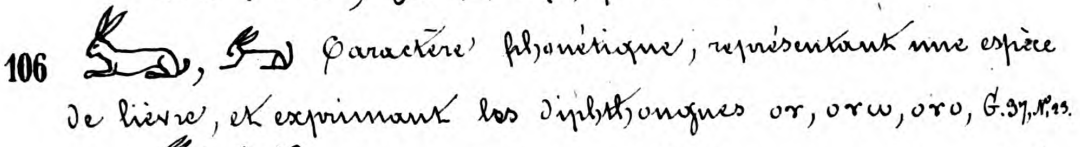 106 , Caractère phonétique, représentant une espèce
de lièvre, et exprimant les diphthongues or, orω, oro, G. 37, Nº, 23.